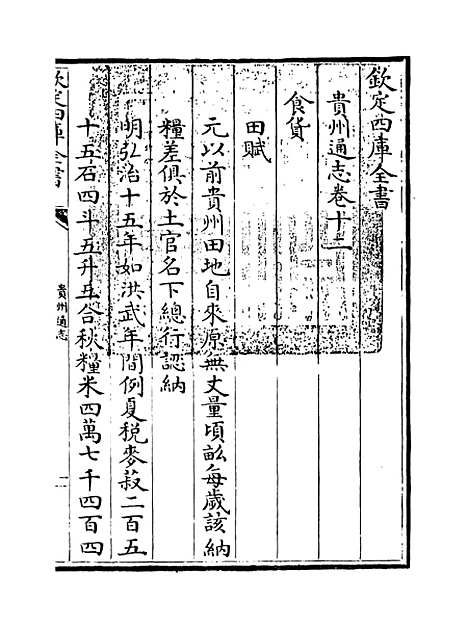 欽定四庫全書
貴州通志卷十二
食貨
田賦
元以前貴州田地自來原無丈量頃畝每歲該納
糧差俱於土官名下總行認納
明弘治十五年如洪武年間例夏税麥菽二百五
十五石四斗五升五合秋糧米四萬七千四百四
欽定四庫全書
貴州通志
一